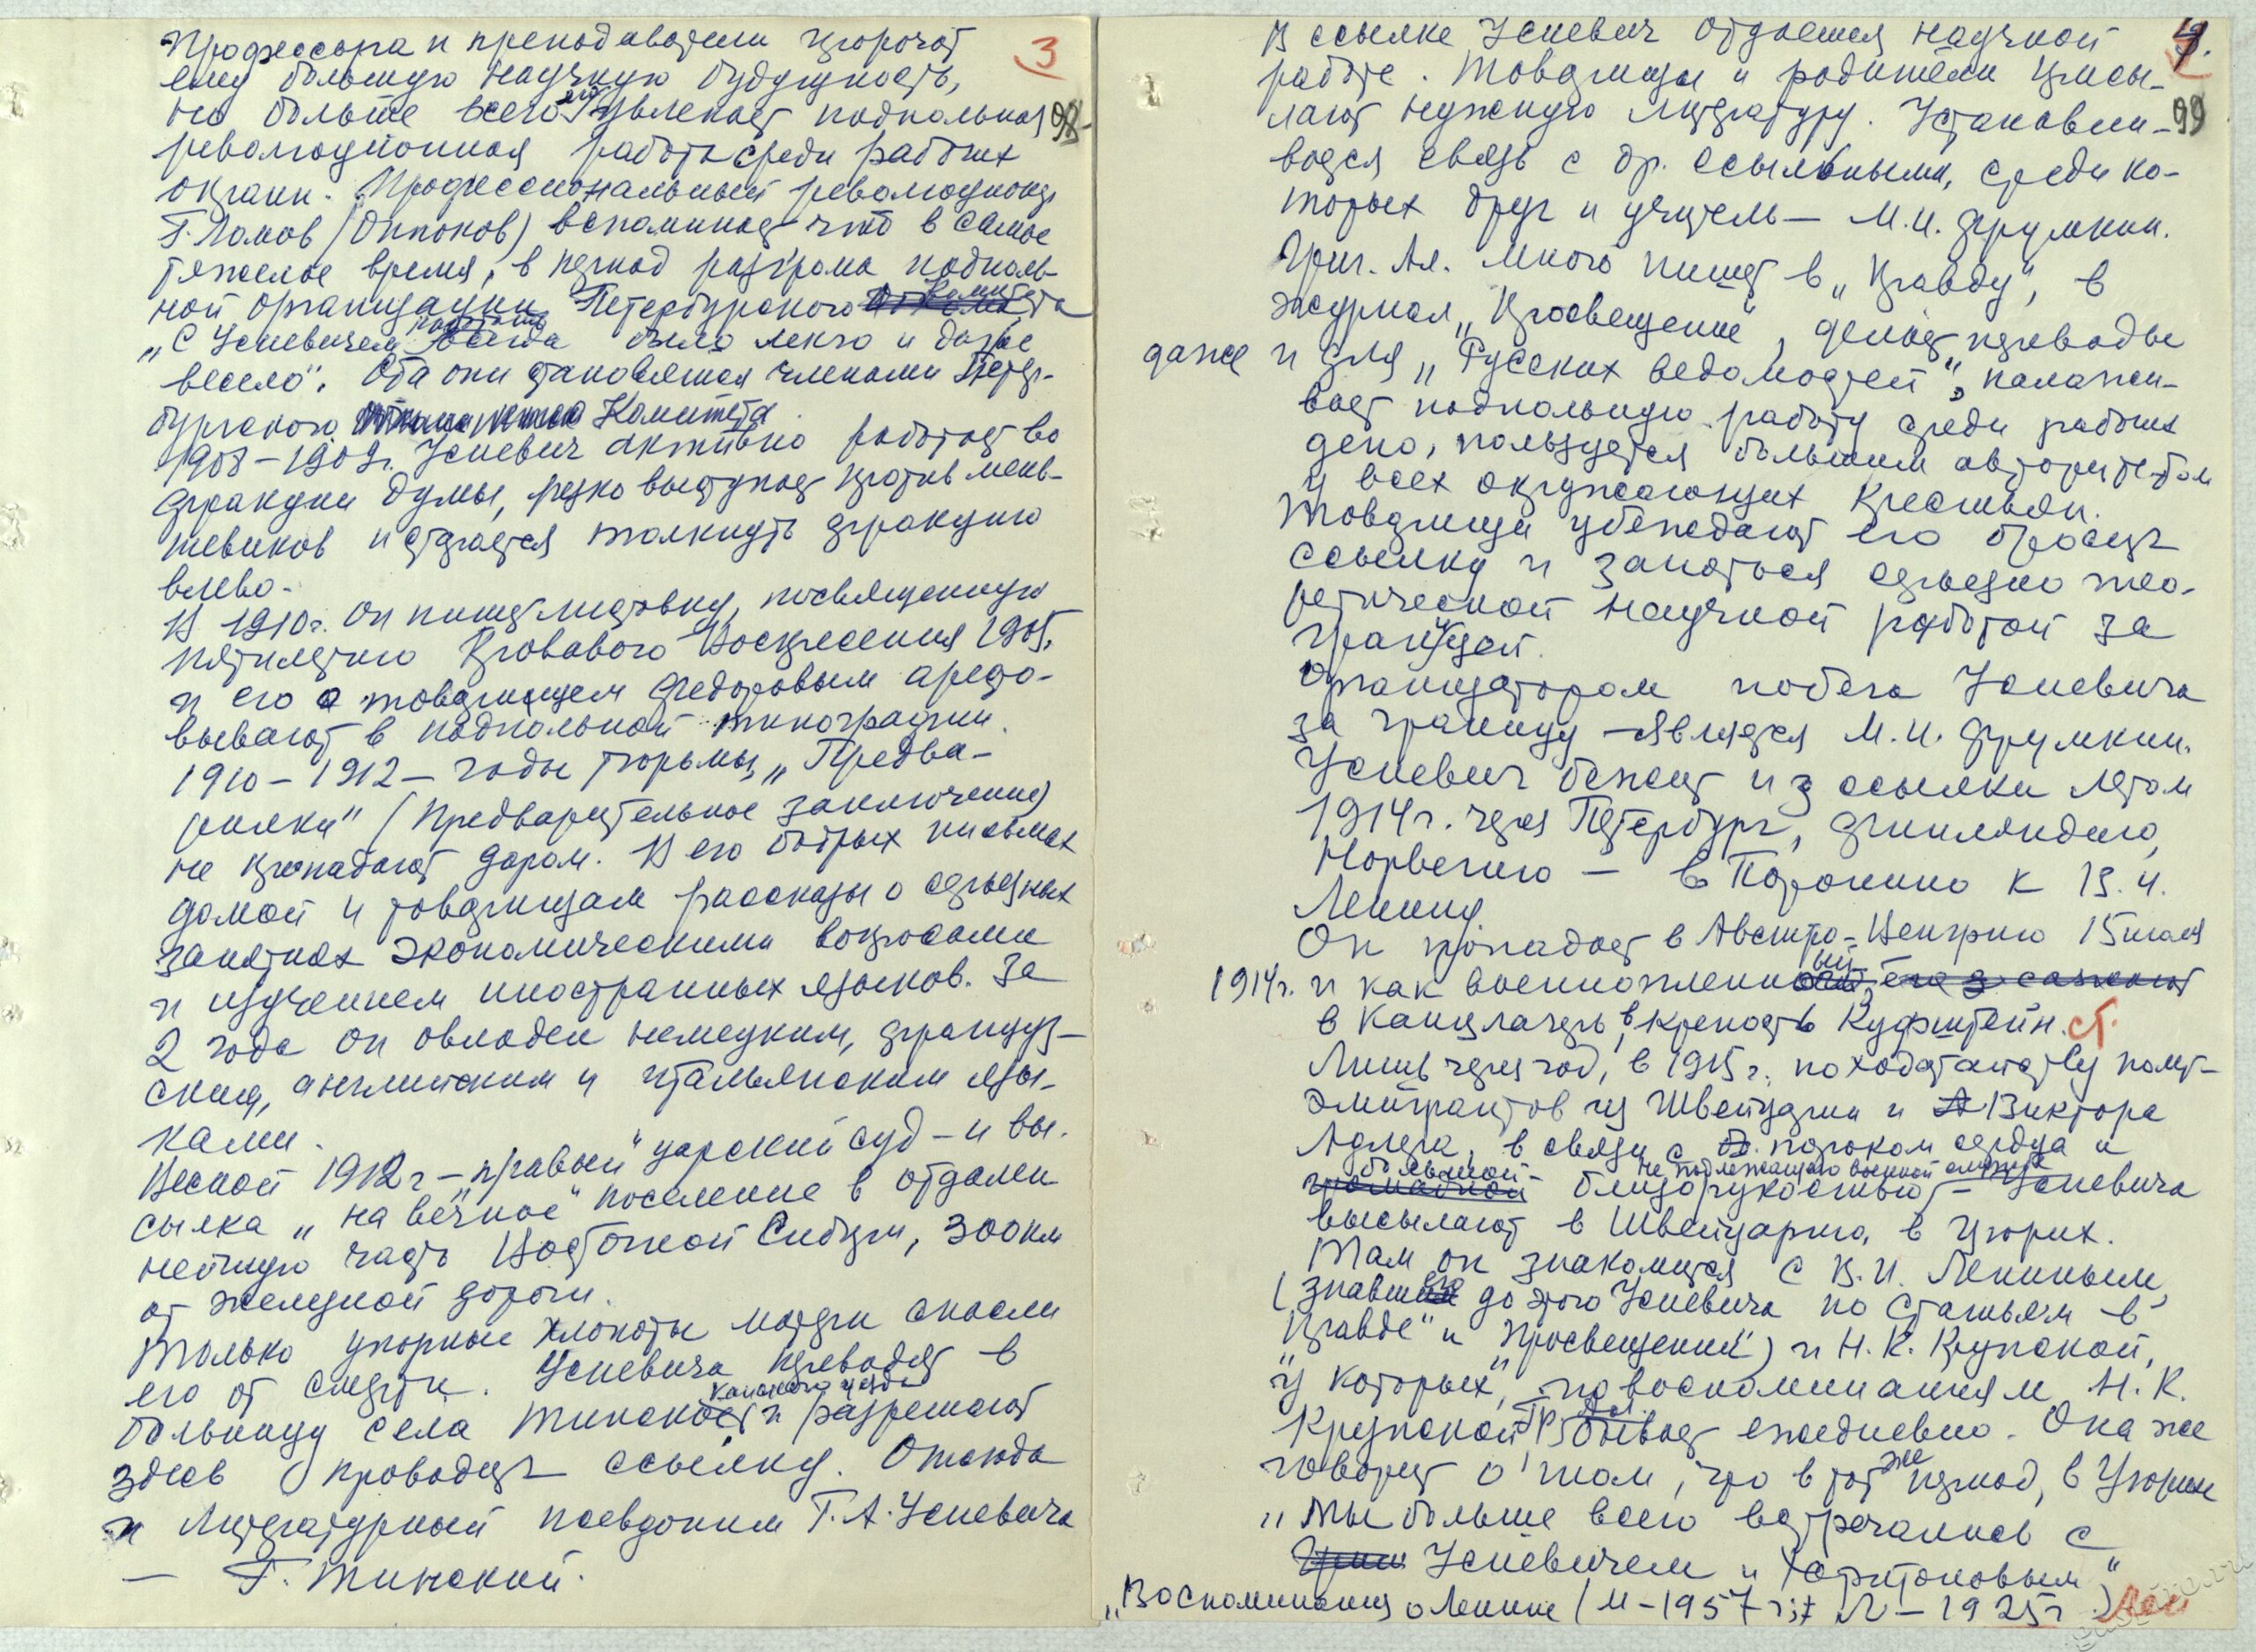 3
Профессора и преподаватели пророчат
ему большую научную будущность,
но больше всего его увлекает подпольная
98
революционная работа среди рабочих
окраин. Профессиональный революционер
Г. Ломов (Оппоков) вспоминает что в самое
тяжелое время, в период разгрома подполь-
ной организации Петербургского Комитета
„С Усиевичем работать было легко и даже
весело". Оба они становятся членами Петер-
бургского Комитета.
1908–1909г. Усиевич активно работает во
фракции думы, резко выступает против мень-
шевиков и старается толкнуть фракцию
влево.
В 1910г. он пишет листовку, посвященную
пятилетию Кровавого Воскресения 1905,
и его с товарищем Федоровым аресто-
вывают в подпольной типографии.
1910–1912– годы тюрьмы, „Предва-
рилки" (Предварительное заключение)
не пропадают даром. В его бодрых письмах
домой и товарищам рассказы о серьезных
занятиях экономическими вопросами
и изучением иностранных языков. За
2 года он овладел немецким, француз-
ским, английским и итальянским язы-
ками.
Весной 1912г – „правый" царский суд – и вы-
сылка „на вечное" поселение в отдален
нейшую часть Восточной Сибири, 300км
от железной дороги.
Только упорные хлопоты матери спасли
его от смерти. Усиевича переводят в
больницу села Тинское Канского уезда и разрешают
здесь проводить ссылку. Отсюда
и литературный псевдоним Г. А. Усиевича
— Г. Тинский.
4.
В ссылке Усиевич отдается научной
работе. Товарищи и родители присы-
лают нужную литературу. Устанавли-
99
вается связь с др. ссыльными, среди ко-
торых друг и учитель — М. И. Фрумкин.
Григ. Ал. много пишет в „Правду", в
журнал „Просвещение", делает переводы
даже и для „Русских ведомостей", налажи-
вает подпольную работу среди рабочих
депо, пользуется большим авторитетом
у всех окружающих крестьян.
Товарищи убеждают его бросить
ссылку и заняться серьезно тео-
ретической научной работой за
границей.
Организатором побега Усиевича
за границу – является М. И. Фрумкин.
Усиевич бежит из ссылки летом
1914г. через Петербург, Финляндию,
Норвегию — в Поронино к В. И.
Ленину
Он попадает в Австро-Венгрию 15 июля
1914г. и как военнопленный его сажают
в концлагерь, в крепость Куфштейн.
Лишь через год, в 1915г., по ходатайству полит-
эмигрантов из Швейцарии и Виктора
Адлера, в связи с пороком сердца и
большой близорукостью – не подлежащего военной службе Усиевича
высылают в Швейцарию, в Цюрих.
Там он знакомится с В. И. Лениным,
(знавшим до этого Усиевича по статьям в
„Правде" и „Просвещении") и Н. К. Крупской,
„у которых", по воспоминаниям Н. К.
Крупской, Гр. Ал. бывает ежедневно. Она же
говорит о том, что в тот же период, в Цюрихе
„мы больше всего встречались с
Усиевичем и Харитоновым"
„Воспоминания о Ленине (М – 1957г; Л – 1925г.)